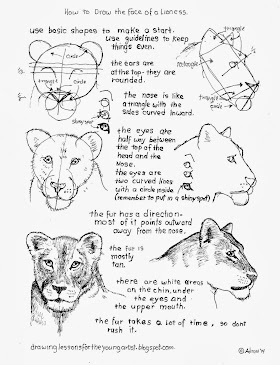 How to Draw the Face of a Lioness.
use basic shapes to make a start.
use guidelines to keep
things even.
circle
triangle
circle
shiny spot
triangle
rectangle
circle
triangle
the ears are
at the top- they are
rounded.
the nose is like
a triangle with the
sides curved inward.
the eyes are
half way between
the top of the
head and the
nose.
the eyes are
two curved lines
with a circle inside
(remember to put in a shiny spot)
the fur has a direction-
most of it points outward
away from the nose.
the fur is
mostly
tan.
there are white areas
on the chin, under
the eyes and
the upper mouth.
the fur takes a lot of time, so dont
rush it.
drawinglessonsfortheyoungartist.blogspot.com